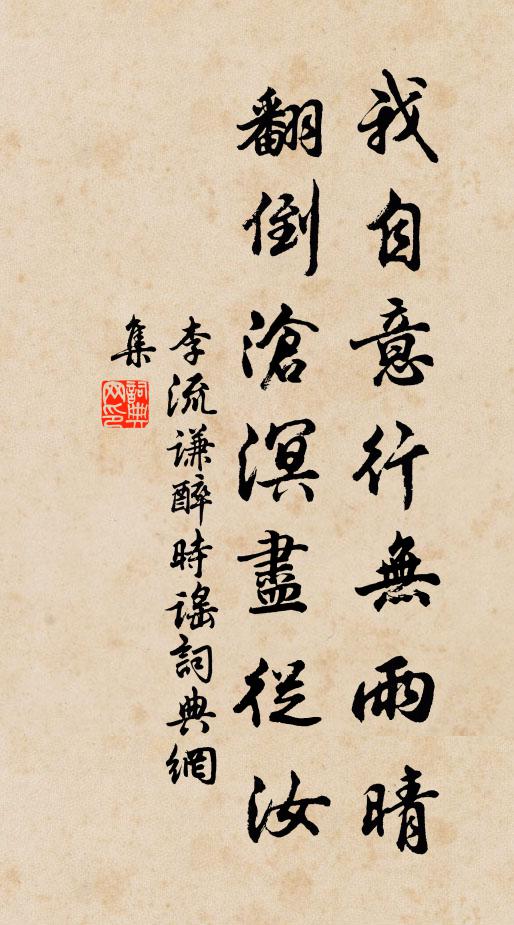 我自意行無雨晴
翻倒滄溟盡從汝
李流謙醉時謠詞典網
集
詞典网印